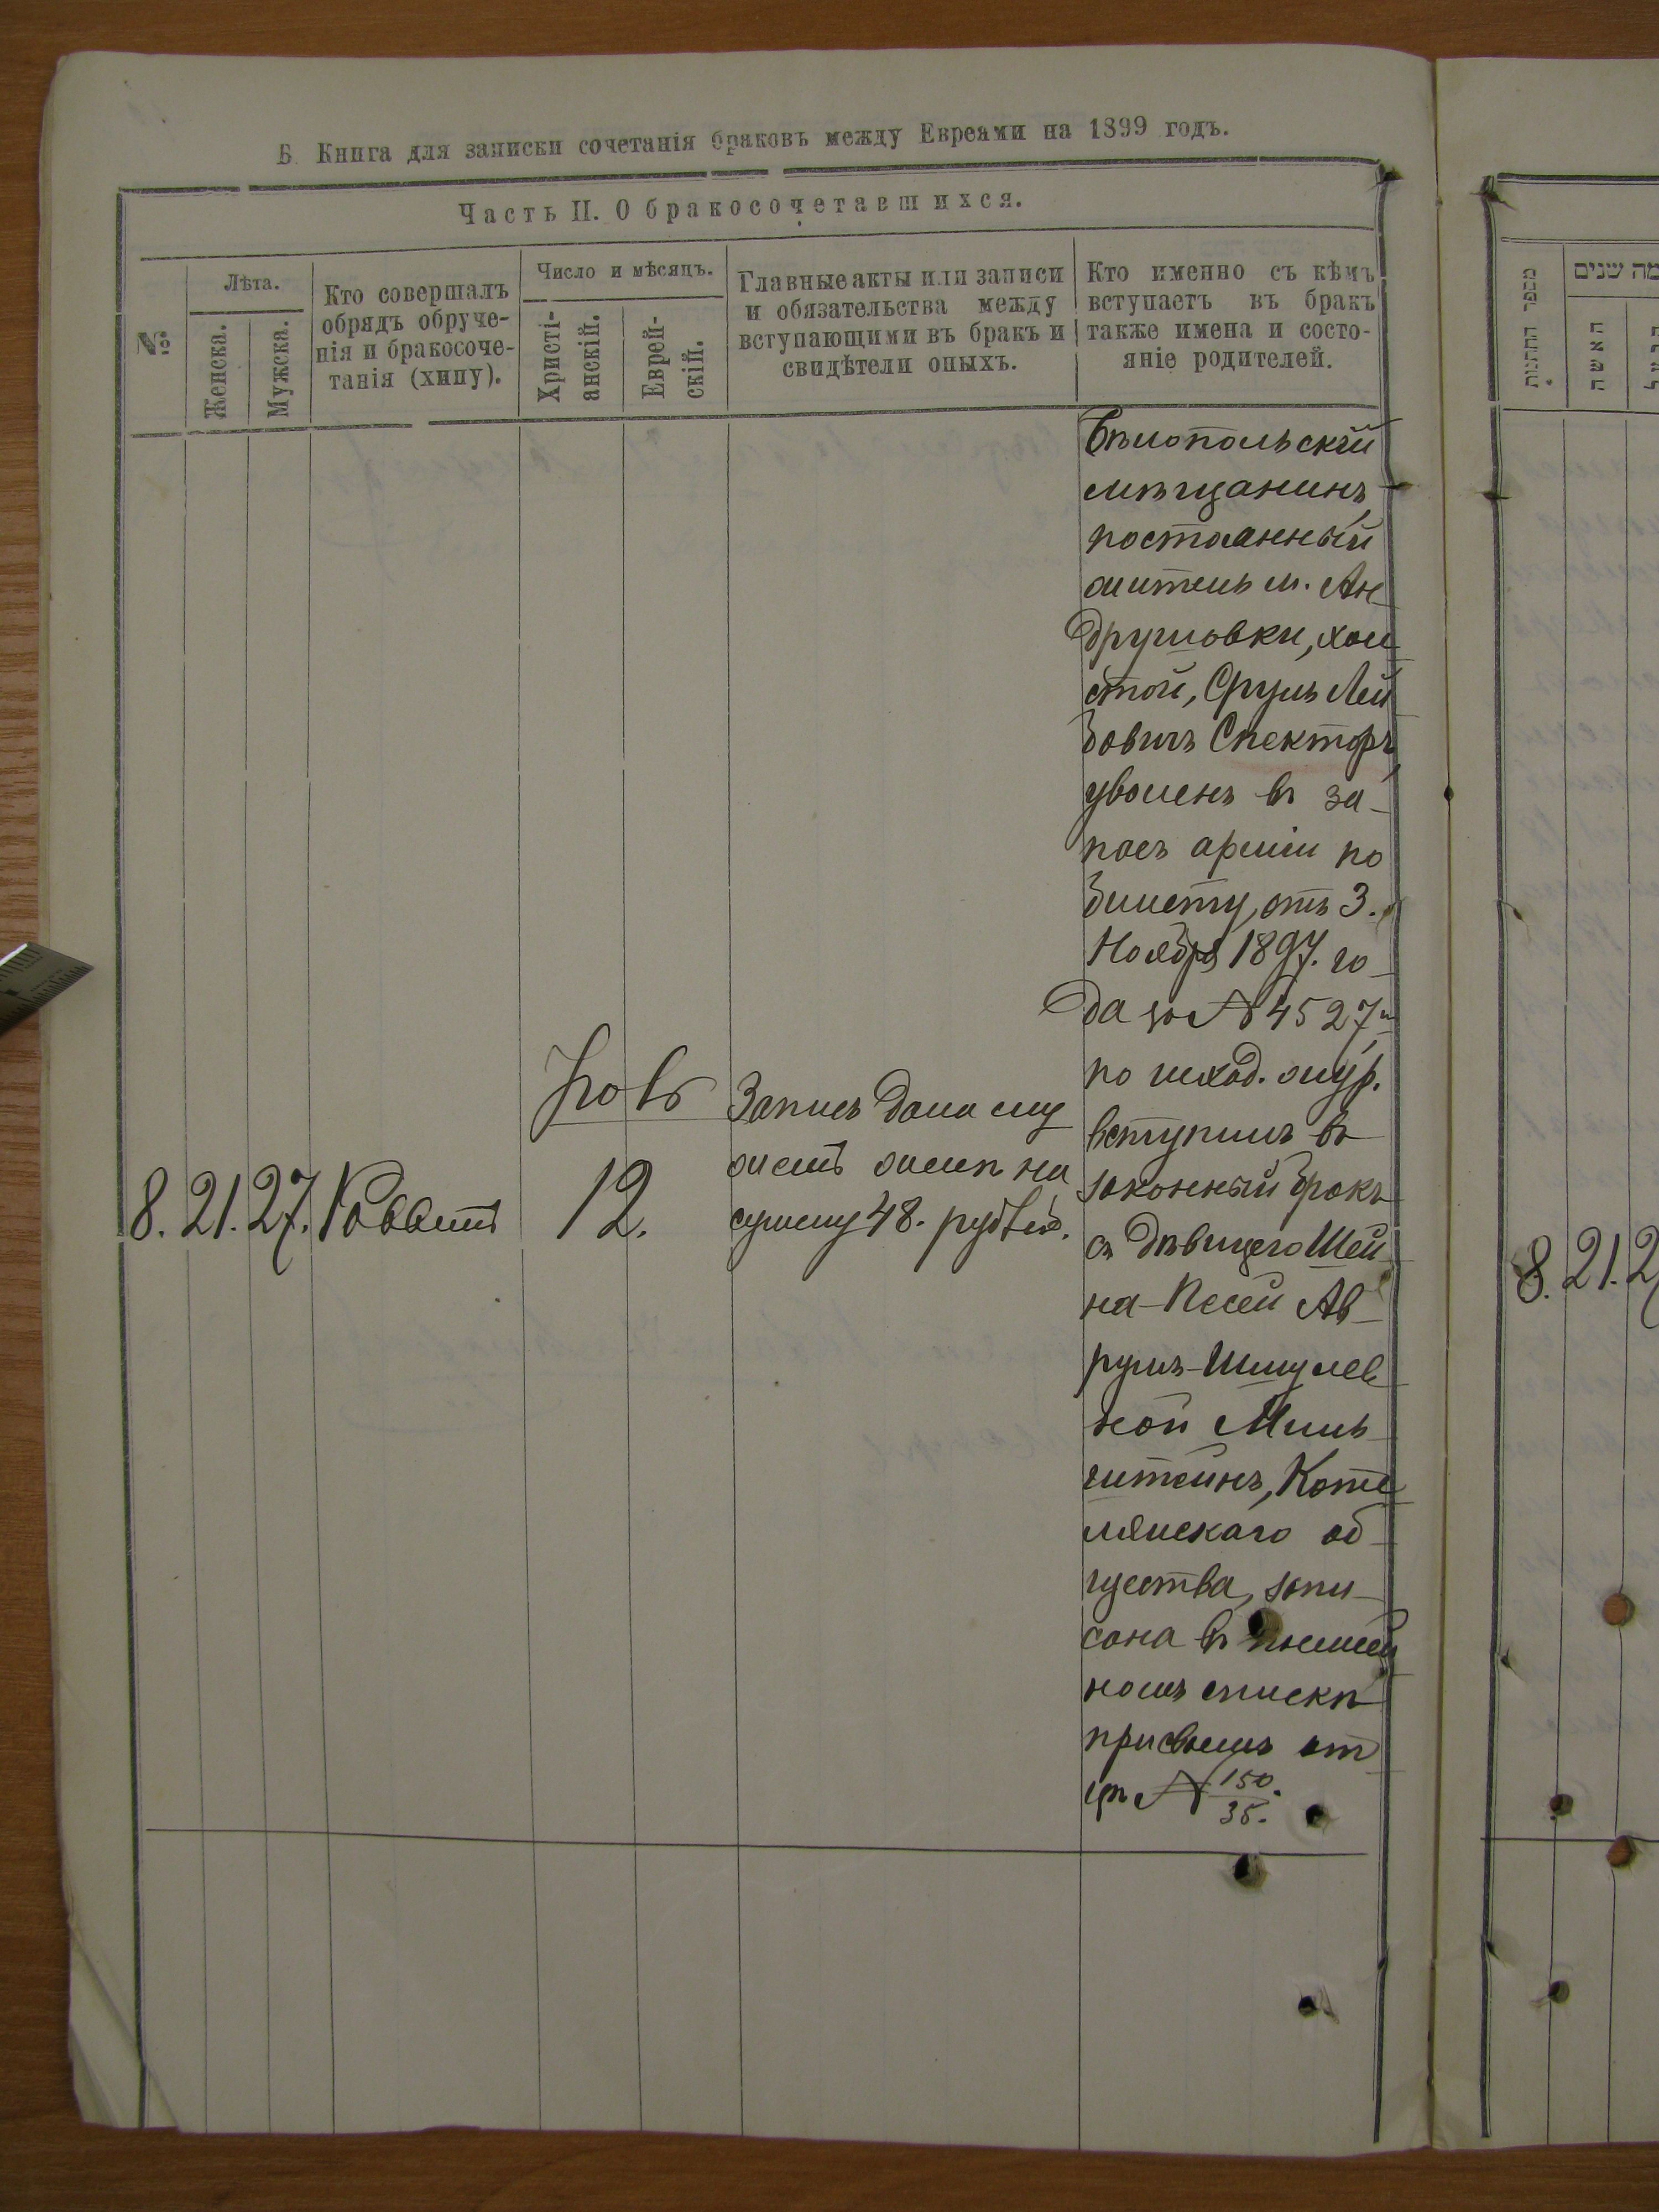 Б. Книга для записки сочетанія браковъ между Евреями на 1899 годъ.
Часть II. О бракосочетавшихся.
№
Лѣта.
Женска.
Мужска.
Кто совершалъ
обрядъ обруче-
нія и бракосоче-
танія (хипу).
Число и мѣсяцъ.
Христі-
анскій.
Еврей-
скій.
Главные акты или записи
и обязательства между
вступающими въ бракъ и
свидѣтели оныхъ.
Кто именно съ кѣмъ
вступаетъ въ бракъ
также имена и состо-
яніе родителей.
8. 21. 27. Раввинъ
12.
Запись дана му
жемъ женѣ на
сумму 48. рублей.
Бѣлопольскій
мѣщанинъ,
постоянный
житель м. Ан
друшовки, холо
стой, Сруль Лей
бовичъ Спекторъ,
уволенъ въ за-
пасъ арміи по
билету, отъ 3.
Ноября 1897. го-
да за № 4527
по исход. жур.
вступилъ въ
законный бракъ
съ дѣвицею Шей
на-Песей Ав-
румъ-Шмулев
ной Миль
штейнъ, Коте
лянскаго об-
щества, запи-
сана въ
номъ спискѣ
при своемъ от
цѣ № 150/35.
מספר החתונות
מה שנים
האשה
8. 21. 2